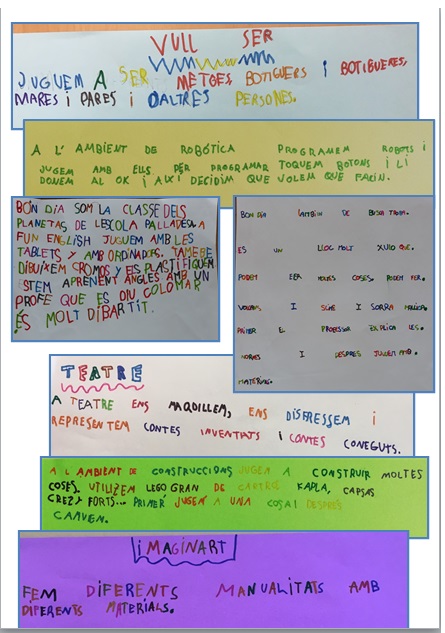 VULL SER
JUGUEM A SER METGES BOTIGUERS I BOTIGUERES,
MARES i PARES i D'ALTRES PERSONES.
A L'AMBIENT DE ROBÒTICA PROGRAMEM ROBOTS i
JUGEM AMB ELLS PER PROGRAMAR TOQUEM BOTONS I LI
DONEM AL OK i AIXÍ DECIDIM QUE VOLEM QUE FACIN.
BON DIA SOM LA CLASSE DELS
PLANETAS DE LESCOLA PALLADELA
FUN ENGLISH JUGUEM AMB LES
TABLETS Y AMB ORDINADORS. TAMEBE
DIBUIXEM CROMOS Y ES PLASTIFIQUEM
STEM APRENENT ANGLÈS AMB UN
PROFE QUE ES DIU COLOMAR
ÉS MOLT DIBARTIT.
BON DIA AMBIEN DE
ES UN LLOC MOLT XULO QUE.
PODEM FER MOLTES COSES. PODEM FER.
VOLCANS I I SORRA MÀGICA.
PRIMER EL PROFESSOR EXPLICA LES.
NORMES I DESPRES JUGEM AMB.
MATERIAL.
TEATRE
A TEATRE ENS MAQUILLEM, ENS DISFRESSEM i
REPRESENTEM CONTES INVENTATS i CONTES CONEGUTS.
A L'AMBIENT DE CONSTRUCCIONS JUGEM A CONSTRUIR MOLTES
COSES. UTILIZEM LEGO GRAN DE CARTRÓ KAPLA, CAPSAS
CREZY FORTS... PRIMER JUGEM A UNA COSA I DESPRÉS
CANVEN.
iMAGINART
FEM DIFERENTS MANUALITATS AMB
DIFERENTS MATERIALS.